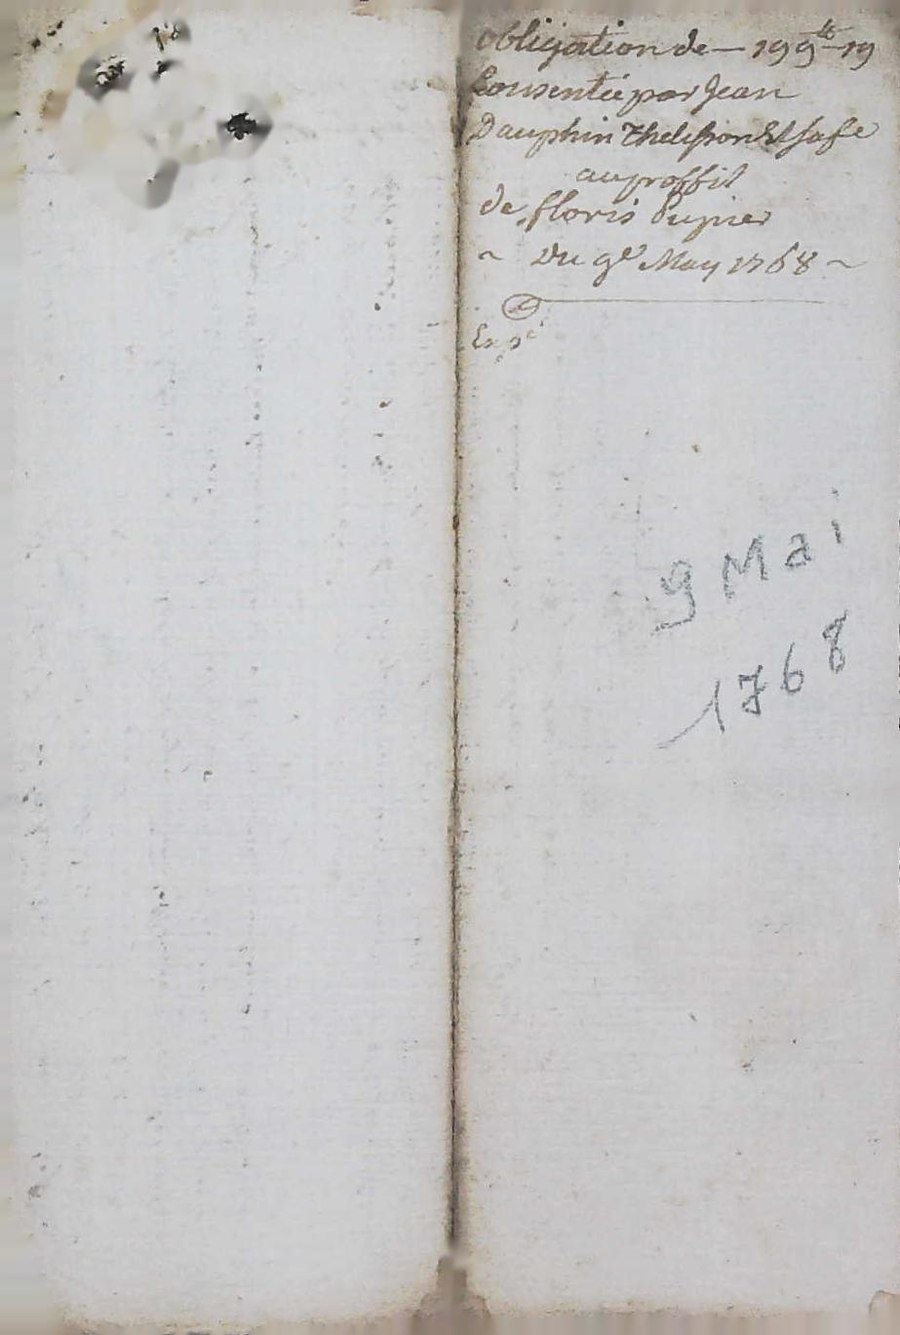 obligation de — 199 lt 19
Consentie par Jean
Dauphin Thelisson Et sa fe
au proffit
de floris
~ Du 9e May 1768 ~
Expé
9 Mai
1768